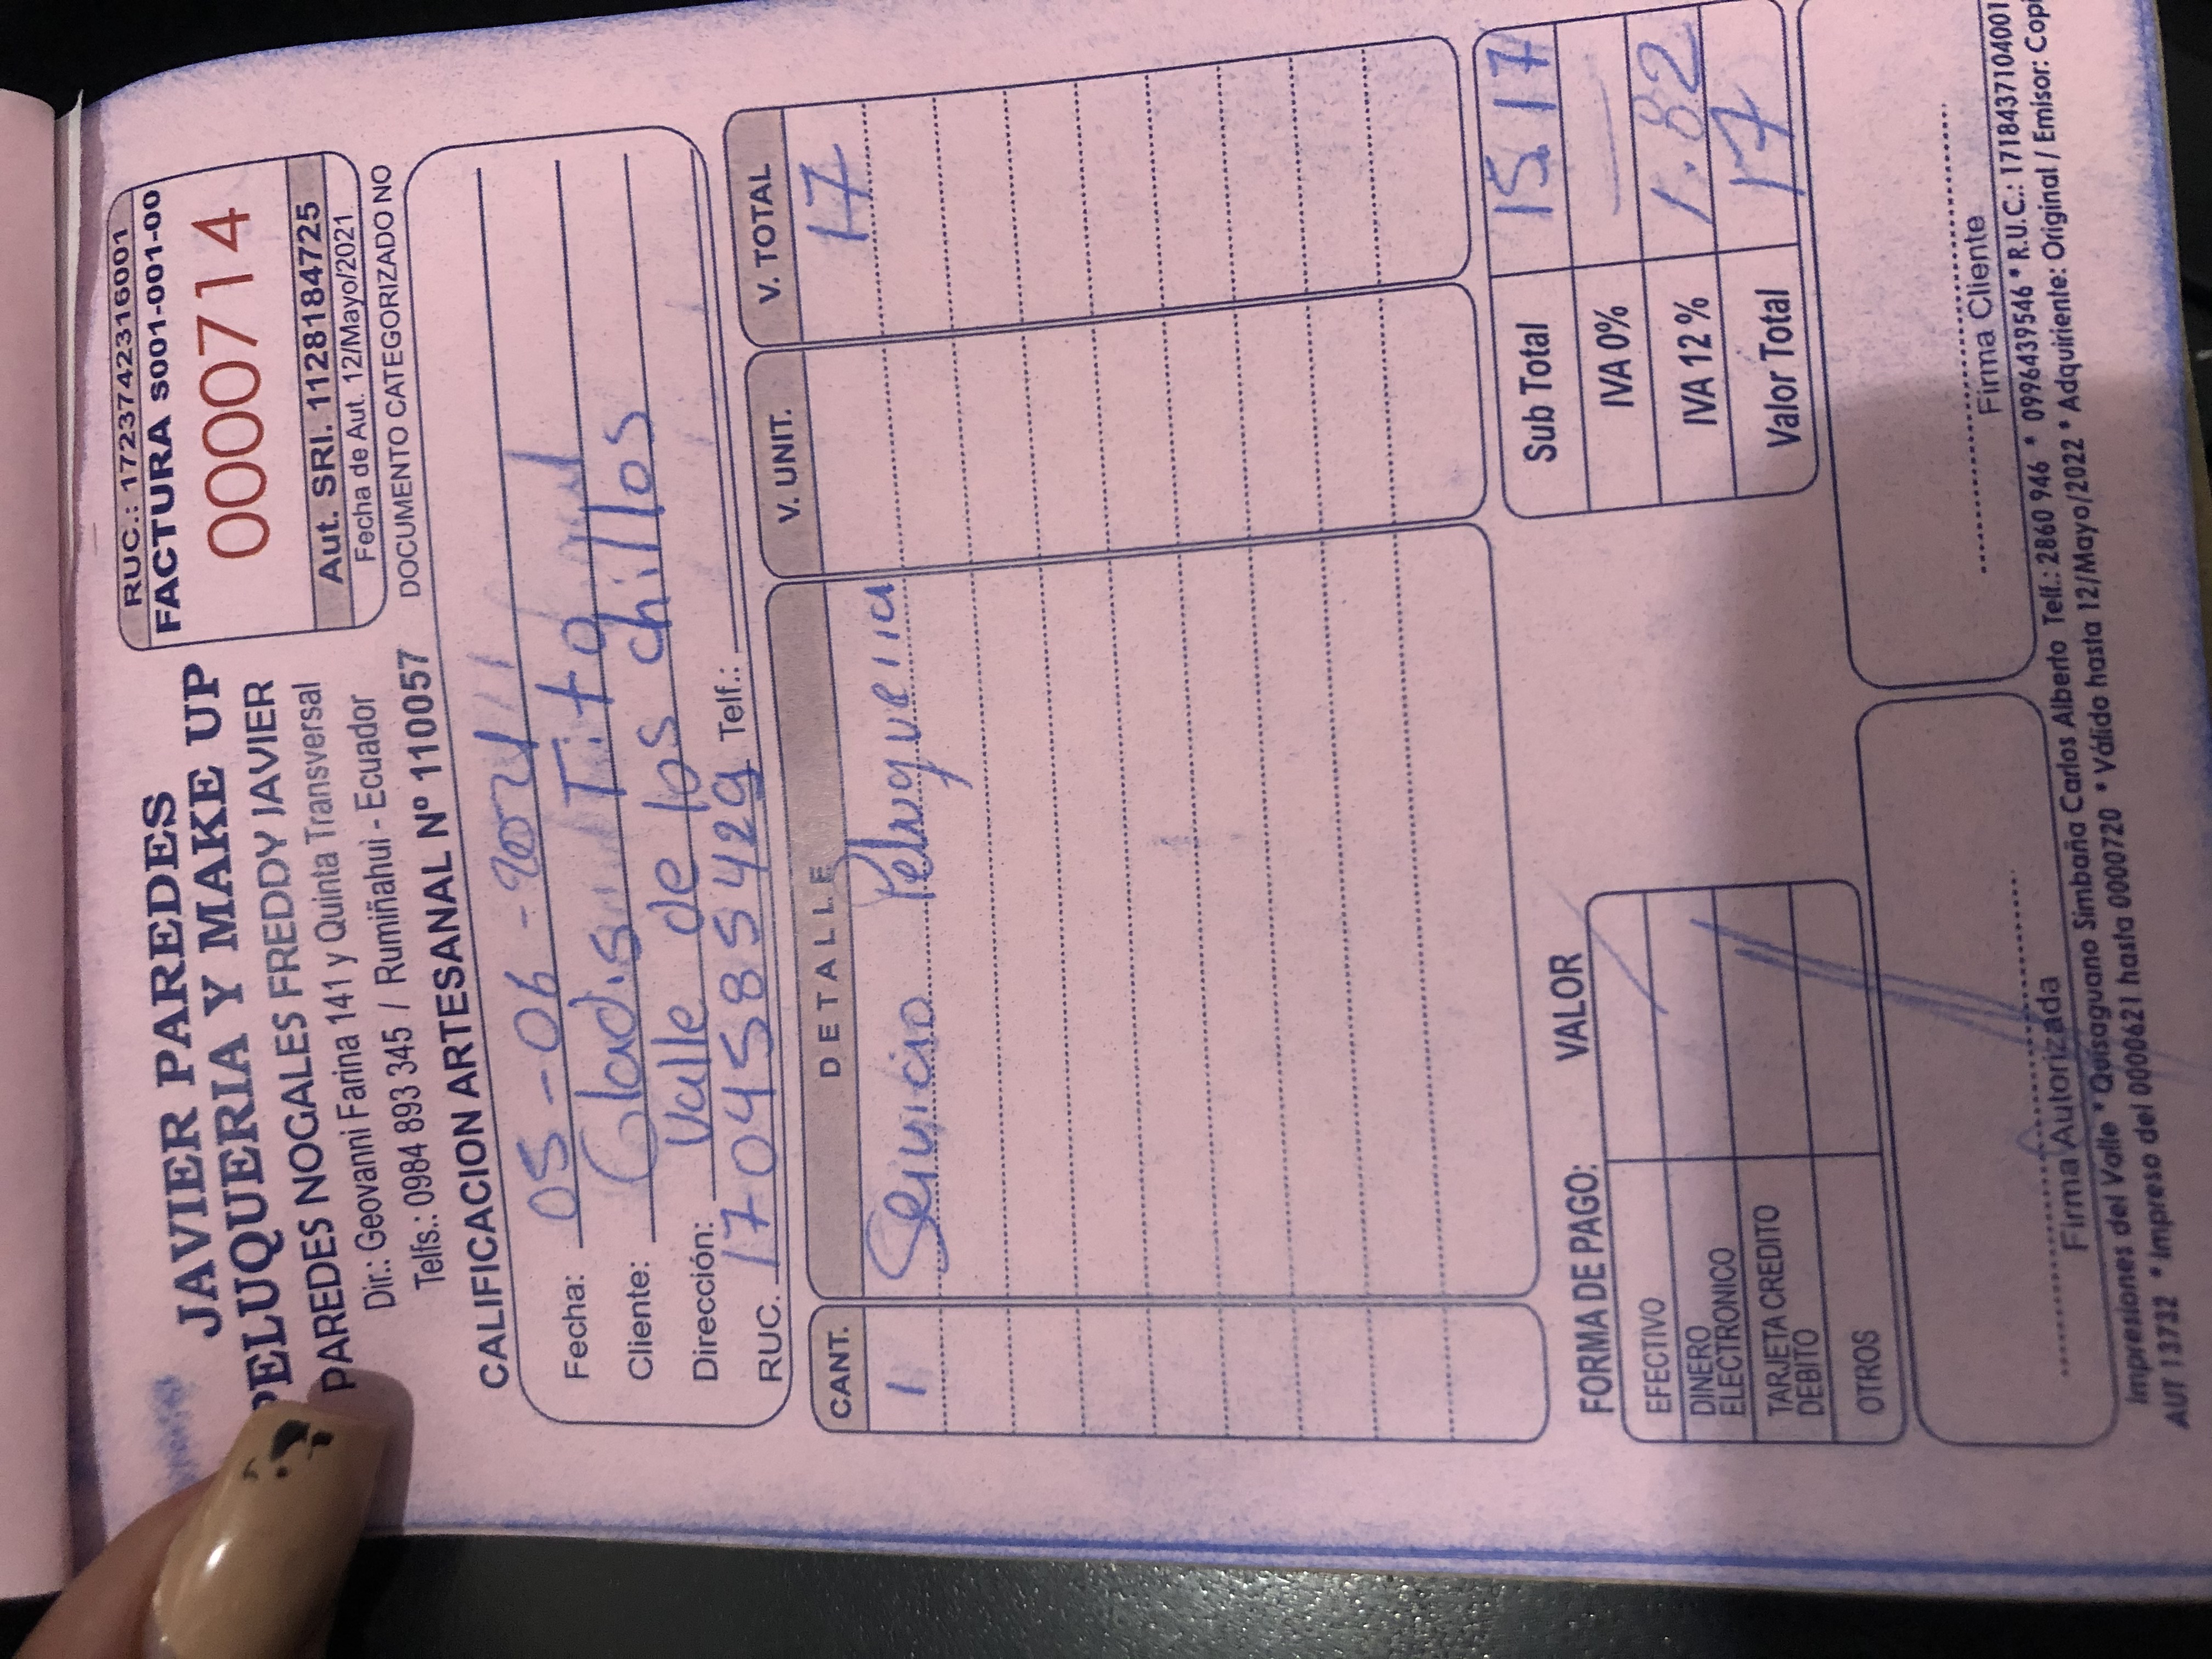 JAVIER PAREDES
PELUQUERIA Y MAKE UP
PAREDES NOGALES FREDDY JAVIER
Dir.: Geovanni Farina 141 y Quinta Transversal
Telfs.: 0984 893 345 / Rumiñahui - Ecuador
CALIFICACION ARTESANAL Nº 110057
RUC.: 1723742316001
FACTURA S001-001-00
0000714
Aut. SRI. 1128184725
Fecha de Aut. 12/Mayo/2021
DOCUMENTO CATEGORIZADO NO
Fecha: 05-06-2021
Cliente: Gladis Tito
Dirección: Valle de los chillos
RUC. 1704585429 Telf.:
CANT. DETALLE V. UNIT. V. TOTAL
1 Servicio Peluqueria 17
Sub Total 15.17
IVA 0% —
IVA 12 % 1.82
Valor Total 17
FORMA DE PAGO: VALOR
EFECTIVO
DINERO
ELECTRONICO
TARJETA CREDITO
DEBITO
OTROS
Firma Autorizada
Firma Cliente
Impresiones del Valle * Quisaguano Simbaña Carlos Alberto Telf.: 2860 946 * 0996439546 * R.U.C.: 1718437104001
AUT 13732 * Impreso del 0000621 hasta 0000720 * Válido hasta 12/Mayo/2022 * Adquiriente: Original / Emisor: Copi